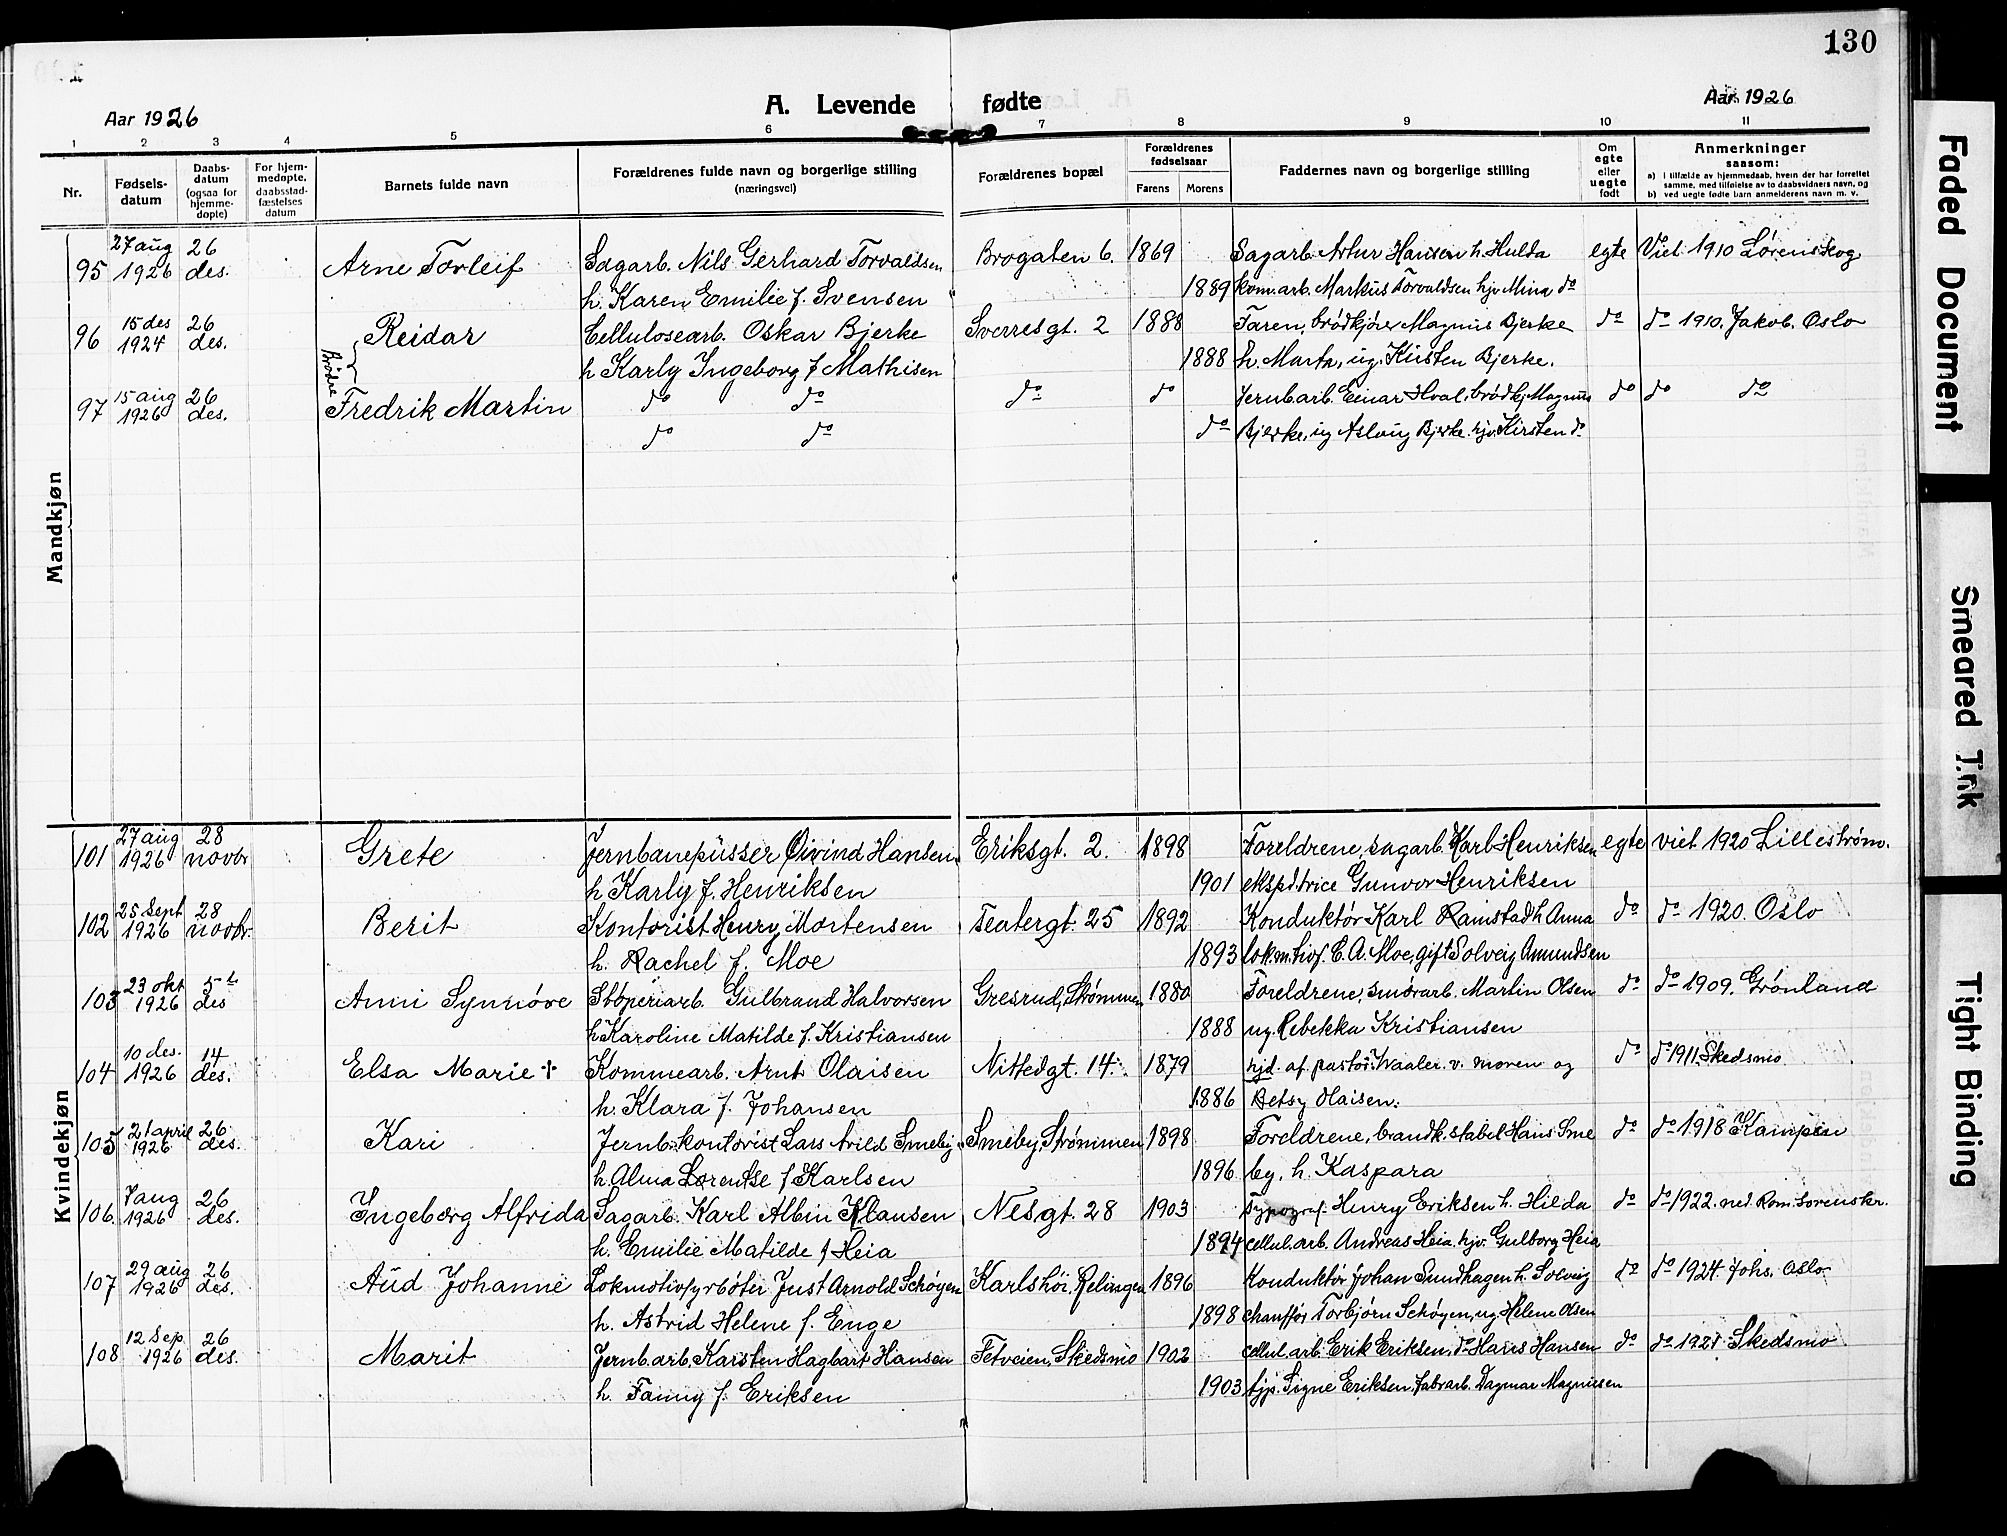 130
Aar 1926
A. Levende fødte
Aar 1926
1 2 3 4 5 6 7 8 9 10 11
Nr.
Fødsels-
datum
Daabs-
datum
(ogsaa for
hjemme-
døpte)
For hjem-
medøpte,
daabsstad-
fæstelses
datum
Barnets fulde navn
Forældrenes fulde navn og borgerlige stilling
(næringsvei)
Forældrenes bopæl
Forældrenes
fødselsaar
Farens Morens
Faddernes navn og borgerlige stilling
Om
egte
eller
uegte
født
Anmerkninger
saasom:
a) i tilfælde av hjemmedaab, hvem der har forrettet
samme, med tilføielse av to daabsvidners navn, og
b) ved uegte fødte barn anmelderens navn m. v.
Mandkjøn
27 aug 26
95 1926 des. Arne Torleif Sagarb. Nils Gerhard Torvaldsen Brogaten 6. 1869 Sagarb. Artur Hansen h. Hulda egte Viet 1910 Lørenskog
h. Karen Emilie f. Svensen 1889 kom. arb. Markus Torvaldsen hjv Mina do
15 des 26
96 1924 des. Reidar Cellulosearb. Oskar Bjerke Sverresgt. 2 1888 Faren, brødkjører Magnus Bjerke do do 1910. Jakob. Oslo
Brødre
h Karly Ingeborg f Mathisen 1888 h. Marta, ug. Kirsten Bjerke.
15 aug 26
97 1926 des. Fredrik Martin do do do do Jernb.arb. Einar Hval, brødkj. Magnus do do do
do do do Bjerke, ug Aslaug Bjerke. hjv. Kirsten do
Kvindekjøn
27 aug 28
101 1926 novbr Grete Jernbanepusser Øivind Hansen Eriksgt. 2. 1898 Foreldrene, sagarb. Karl Henriksen egte viet 1920 Lillestrøm.
h Karly f. Henriksen 1901 ekspd.trice Gunvor Henriksen
25 Sept 28
102 1926 novbr. Berit Kontorist Henry Mortensen Teatergt. 25 1892 Konduktør Karl Ramstad h Anna do do 1920. Oslo
h. Rachel f. Moe 1893 lokm.tivf. C. A. Moe, gift Solveig Amundsen
23 okt 5te
103 1926 des Anni Synnøve Støperiarb. Gulbrand Halvorsen Gresrud, Strømmen 1880 Foreldrene, smørarb. Martin Olsen do do 1909. Grønland
h Karoline Matilde f. Kristiansen 1888 ug. Rebekka Kristiansen
10 des. 14
104 1926 des. Elsa Marie + Kommearb. Arnt Olaisen Nittedgt. 14. 1879 hjd. af pastor Waaler. v. moren og do do 1911. Skedsmo
h. Klara f. Johansen 1886 Betsy Olaisen.
21 april 26
105 1926 des. Kari Jernb.kontorist Lars Arild Smeby Smeby, Strømmen 1898 Foreldrene, brandk.stabel Hans Sme do do 1918 Kampen
h. Alma Lorentse f Karlsen 1896 by, h. Kaspara
7 aug 26
106. 1926 des. Ingeborg Alfrida Sagarb. Karl Albin Klausen Nesgt. 28 1903 Typograf. Henry Eriksen h. Hilda do do 1922. ned Rom. Lørenskr.
h. Emilie Matilde f Heia 1894 cellul.arb. Andreas Heia. hjv. Gulborg Heia
29 aug 26
107 1926 des. Aud Johanne Lokmotivfyrbøter Just Arnold Schøyen Karlshøi. Relingen 1896 Konduktør Johan Sundhagen h. Solveig do do 1924. Johs. Oslo
h. Astrid Helene f. Enge 1898 chauffør Torbjørn Schøyen, ug. Helene Olsen
12 Sep 26
108 1926 des. Marit Jernb.arb. Karsten Hagbart Hansen Fetveien, Skedsmo 1902 cellul.arb. Erik Eriksen, do Hans Hansen do do Skedsmo
h. Fanny f. Eriksen 1903 tjp. Signe Eriksen. fabrarb. Dagmar Magnusen
Faded Document
Smeared Ink
Tight Binding